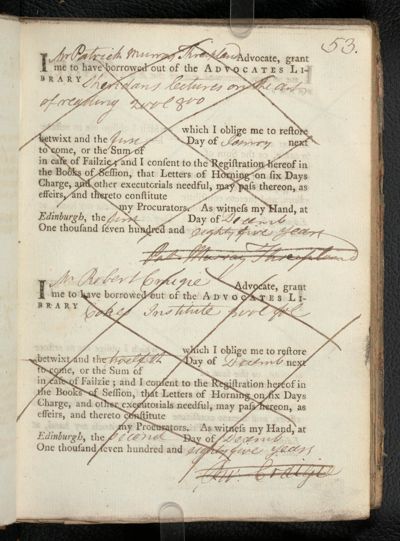 53.
I Mr Patrick Murray Threipland Advocate, grant
me to have borrowed out of the ADVOCATES LI-
BRARY Sheridans lectures on the art
of reading 2 vol 8vo
which I oblige me to reſtore
betwixt and the first Day of Janry next
to come, or the Sum of
in caſe of Failzie; and I conſent to the Regiſtration hereof in
the Books of Seſſion, that Letters of Horning on ſix Days
Charge, and other executorials needful, may paſs thereon, as
effeirs, and thereto conſtitute
my Procurators. As witneſs my Hand, at
Edinburgh, the first Day of Decemb
One thouſand ſeven hundred and eighty five years
Pat. Murray Threipland
I Mr Robert Craigie Advocate, grant
me to have borrowed out of the ADVOCATES LI-
BRARY Cokes Institute
which I oblige me to reſtore
betwixt and the twelfth Day of Decemb next
to come, or the Sum of
in caſe of Failzie; and I conſent to the Regiſtration hereof in
the Books of Seſſion, that Letters of Horning on ſix Days
Charge, and other executorials needful, may paſs hereon, as
effeirs, and thereto conſtitute
my Procurators. As witneſs my Hand, at
Edinburgh, the second Day of Decemb
One thouſand ſeven hundred and eighty five years
Ror. Craigie